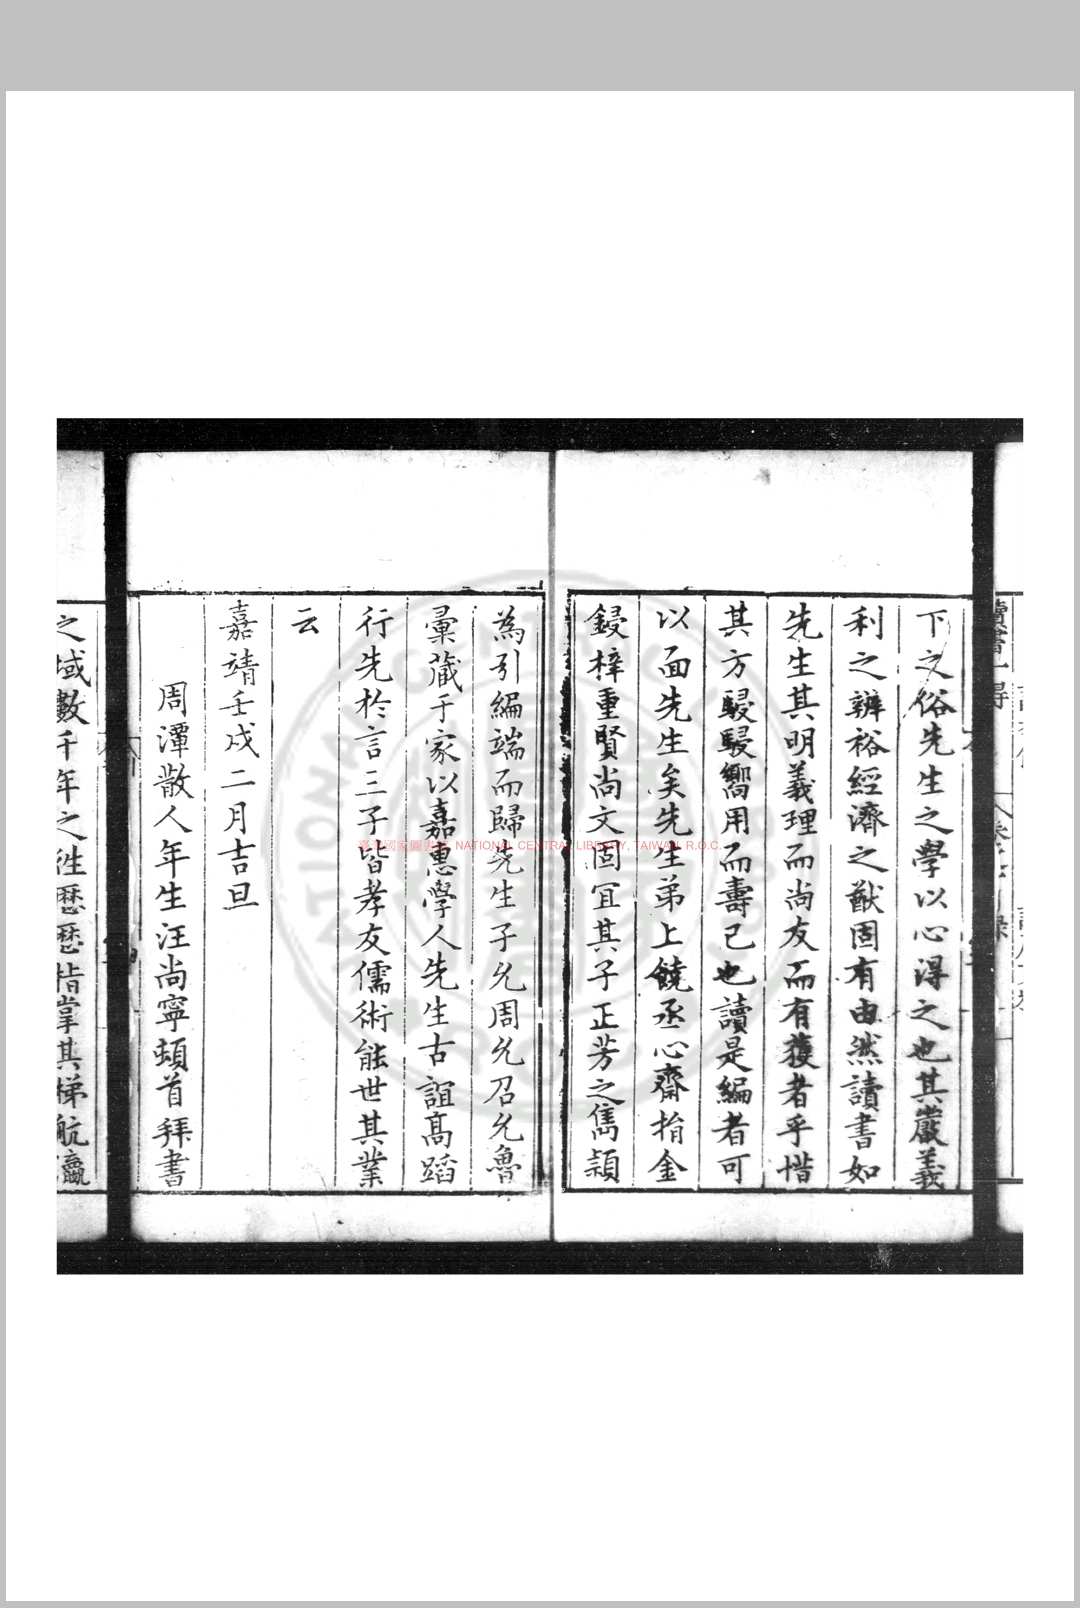 下之俗先生之學以心淂之也其嚴義
利之辨裕經濟之猷固有由然讀書如
先生其明義理而尚友而有獲者乎惜
其方駸駸嚮用而壽已也讀是編者可
以面先生矣先生弟上饒丞心齋捐金
鋟梓重賢尚文固宜其子正芳之雋頴
為引編端而歸先生子允周允召允魯
彚蔵于家以嘉惠學人先生古誼髙蹈
行先於言三子皆孝友儒術能世其業
云
嘉靖壬戌二月吉旦
周潭散人年生汪尚寧頓首拜書
之域數千年之徃歴歴指掌其梯航瀛
臺灣國家圖書館 NATIONAL CENTRAL LIBRARY, TAIWAN, R.O.C.